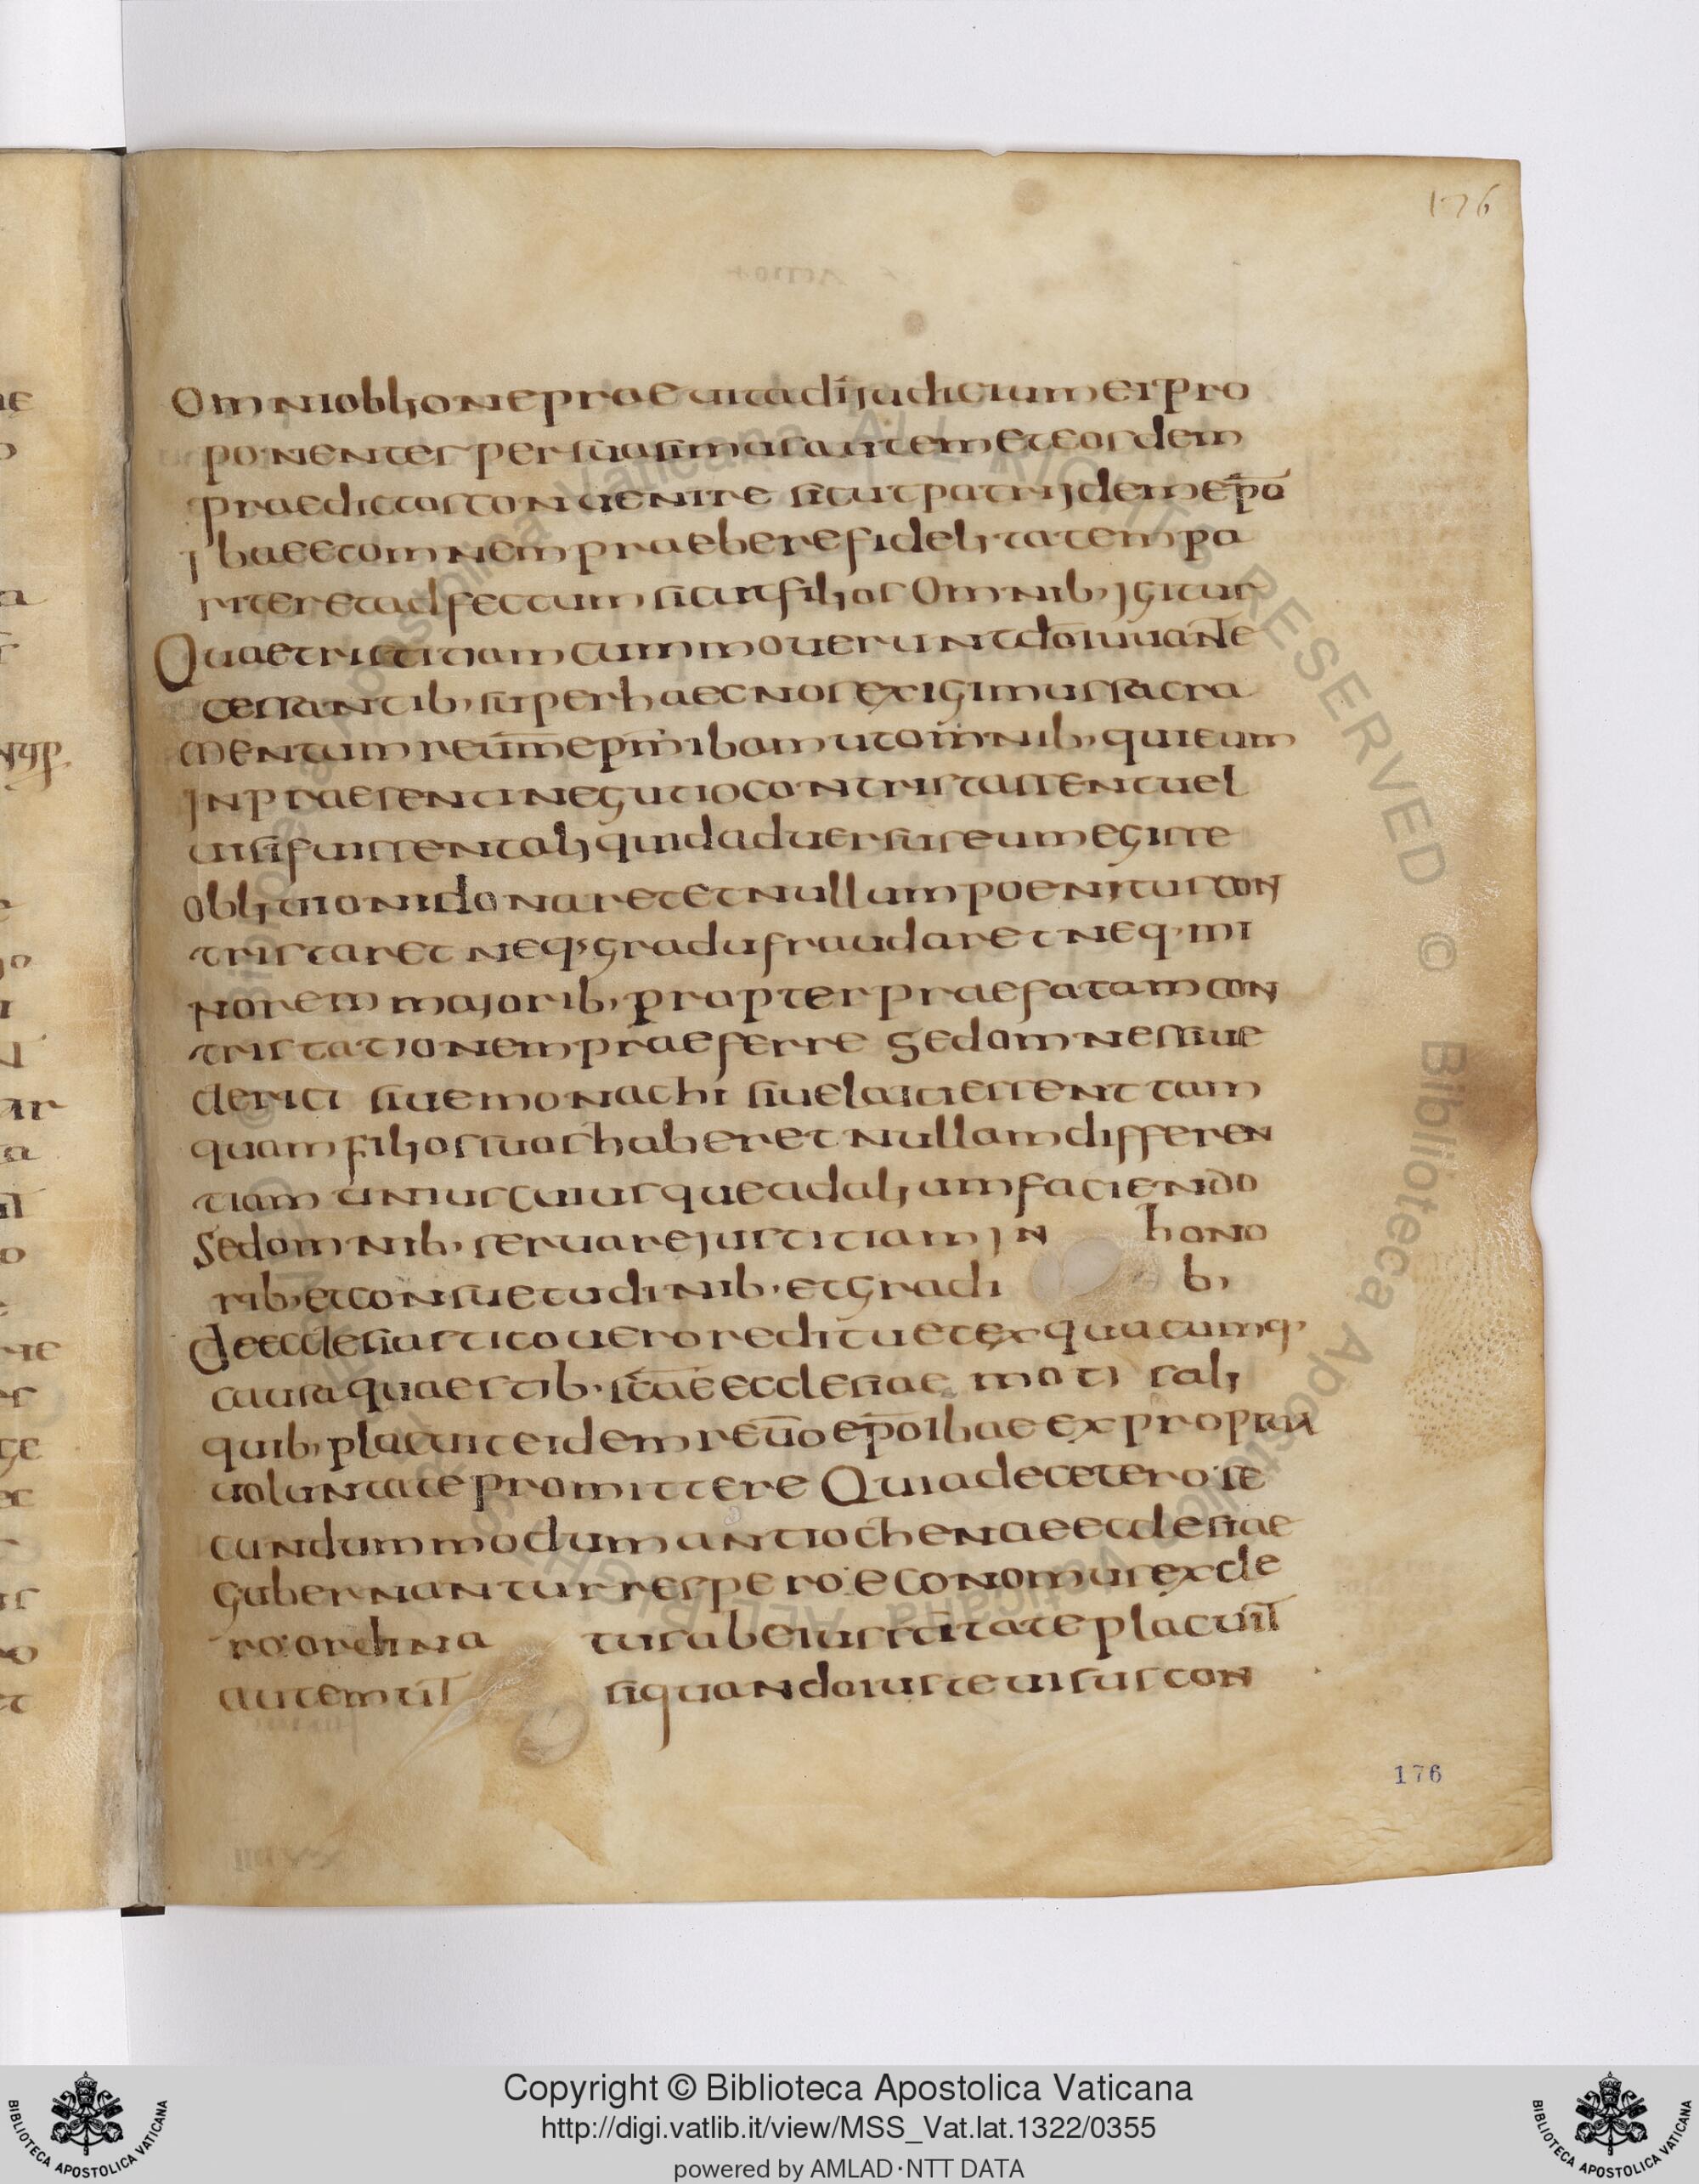 176
omni oblione prae vita di judicium ei pro
ponentes persuasimus autem et eosdem
praedictos convenire sicut patri jdem epo
jbae et omnem praebere fidelitatem pa
riter et adfectum sicut filios Omnib, jgitur
Quae tristitiam cummoverunt do iuvante
cessantib, super haec nos exigimus sacra
mentum reum epm ibam ut omnib, qui eum
jn praesenti negutio contristassent vel
visi fuissent aliquid adversus eum egisse
oblivioni donaret et nullum poenitus con
tristaret neq, gradu fraudaret neq, mi
norem majorib, propter praefatam con
tristationem praeferre Sed omnes sive
clerici sive monachi sive laici essent tam
quam filios suos haberet nullam differen
tiam unius cuiusque ad alium faciendo
Sed omnib, servare justitiam jn hono
rib, et consuetudinib, et gradi b,
de ecclesiastico vero reditu et ex quacumq,
causa quaestib, scae ecclesiae moti sali
quib, placuit eidem revo epo ibae ex propria
voluntate promittere Quia de cetero se
cundum modum antiochenae ecclesiae
gubernantur res per oeconomus ex cle
ro ordina tus ab eius scitate placuit
autem ut si quando iuste visus con
176
Copyright © Biblioteca Apostolica Vaticana
http://digi.vatlib.it/view/MSS_Vat.lat.1322/0355
powered by AMLAD·NTT DATA